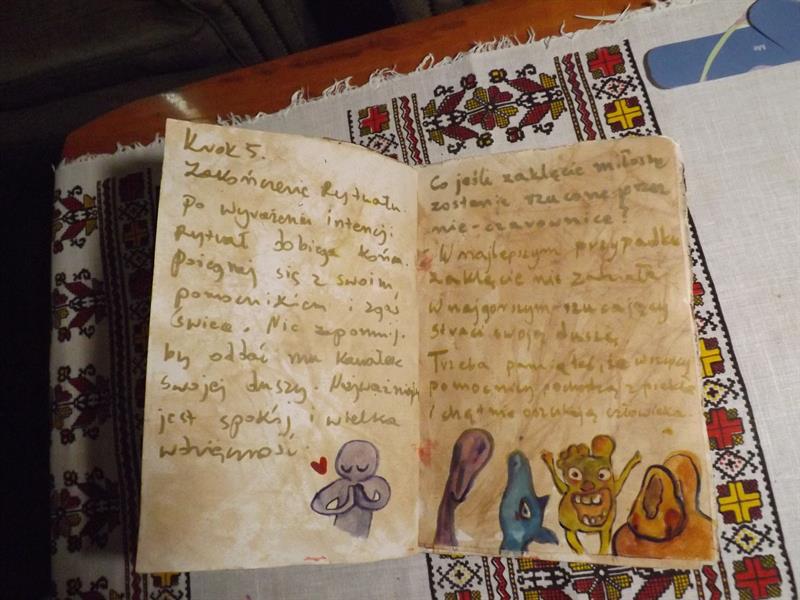 Krok 5.
Zakończenie Rytuału.
Po wyrażeniu intencji
Rytuał dobiega końca.
Pożegnaj się z swoim
pomocnikiem i zgaś
świecę. Nie zapomnij,
by oddać mu kawałek
swojej duszy. Najważniejszy
jest spokój i wielka
wdzięczność.
Co jeśli zaklęcie miłosne
zostanie rzucone przez
nie-czarownice?
W najlepszym przypadku
zaklęcie nie zadziała
W najgorszym rzucający
straci swoją duszę,
Trzeba pamiętać, że wszyscy
pomocnicy pochodzą z piekła
i chętnie oszukają człowieka.